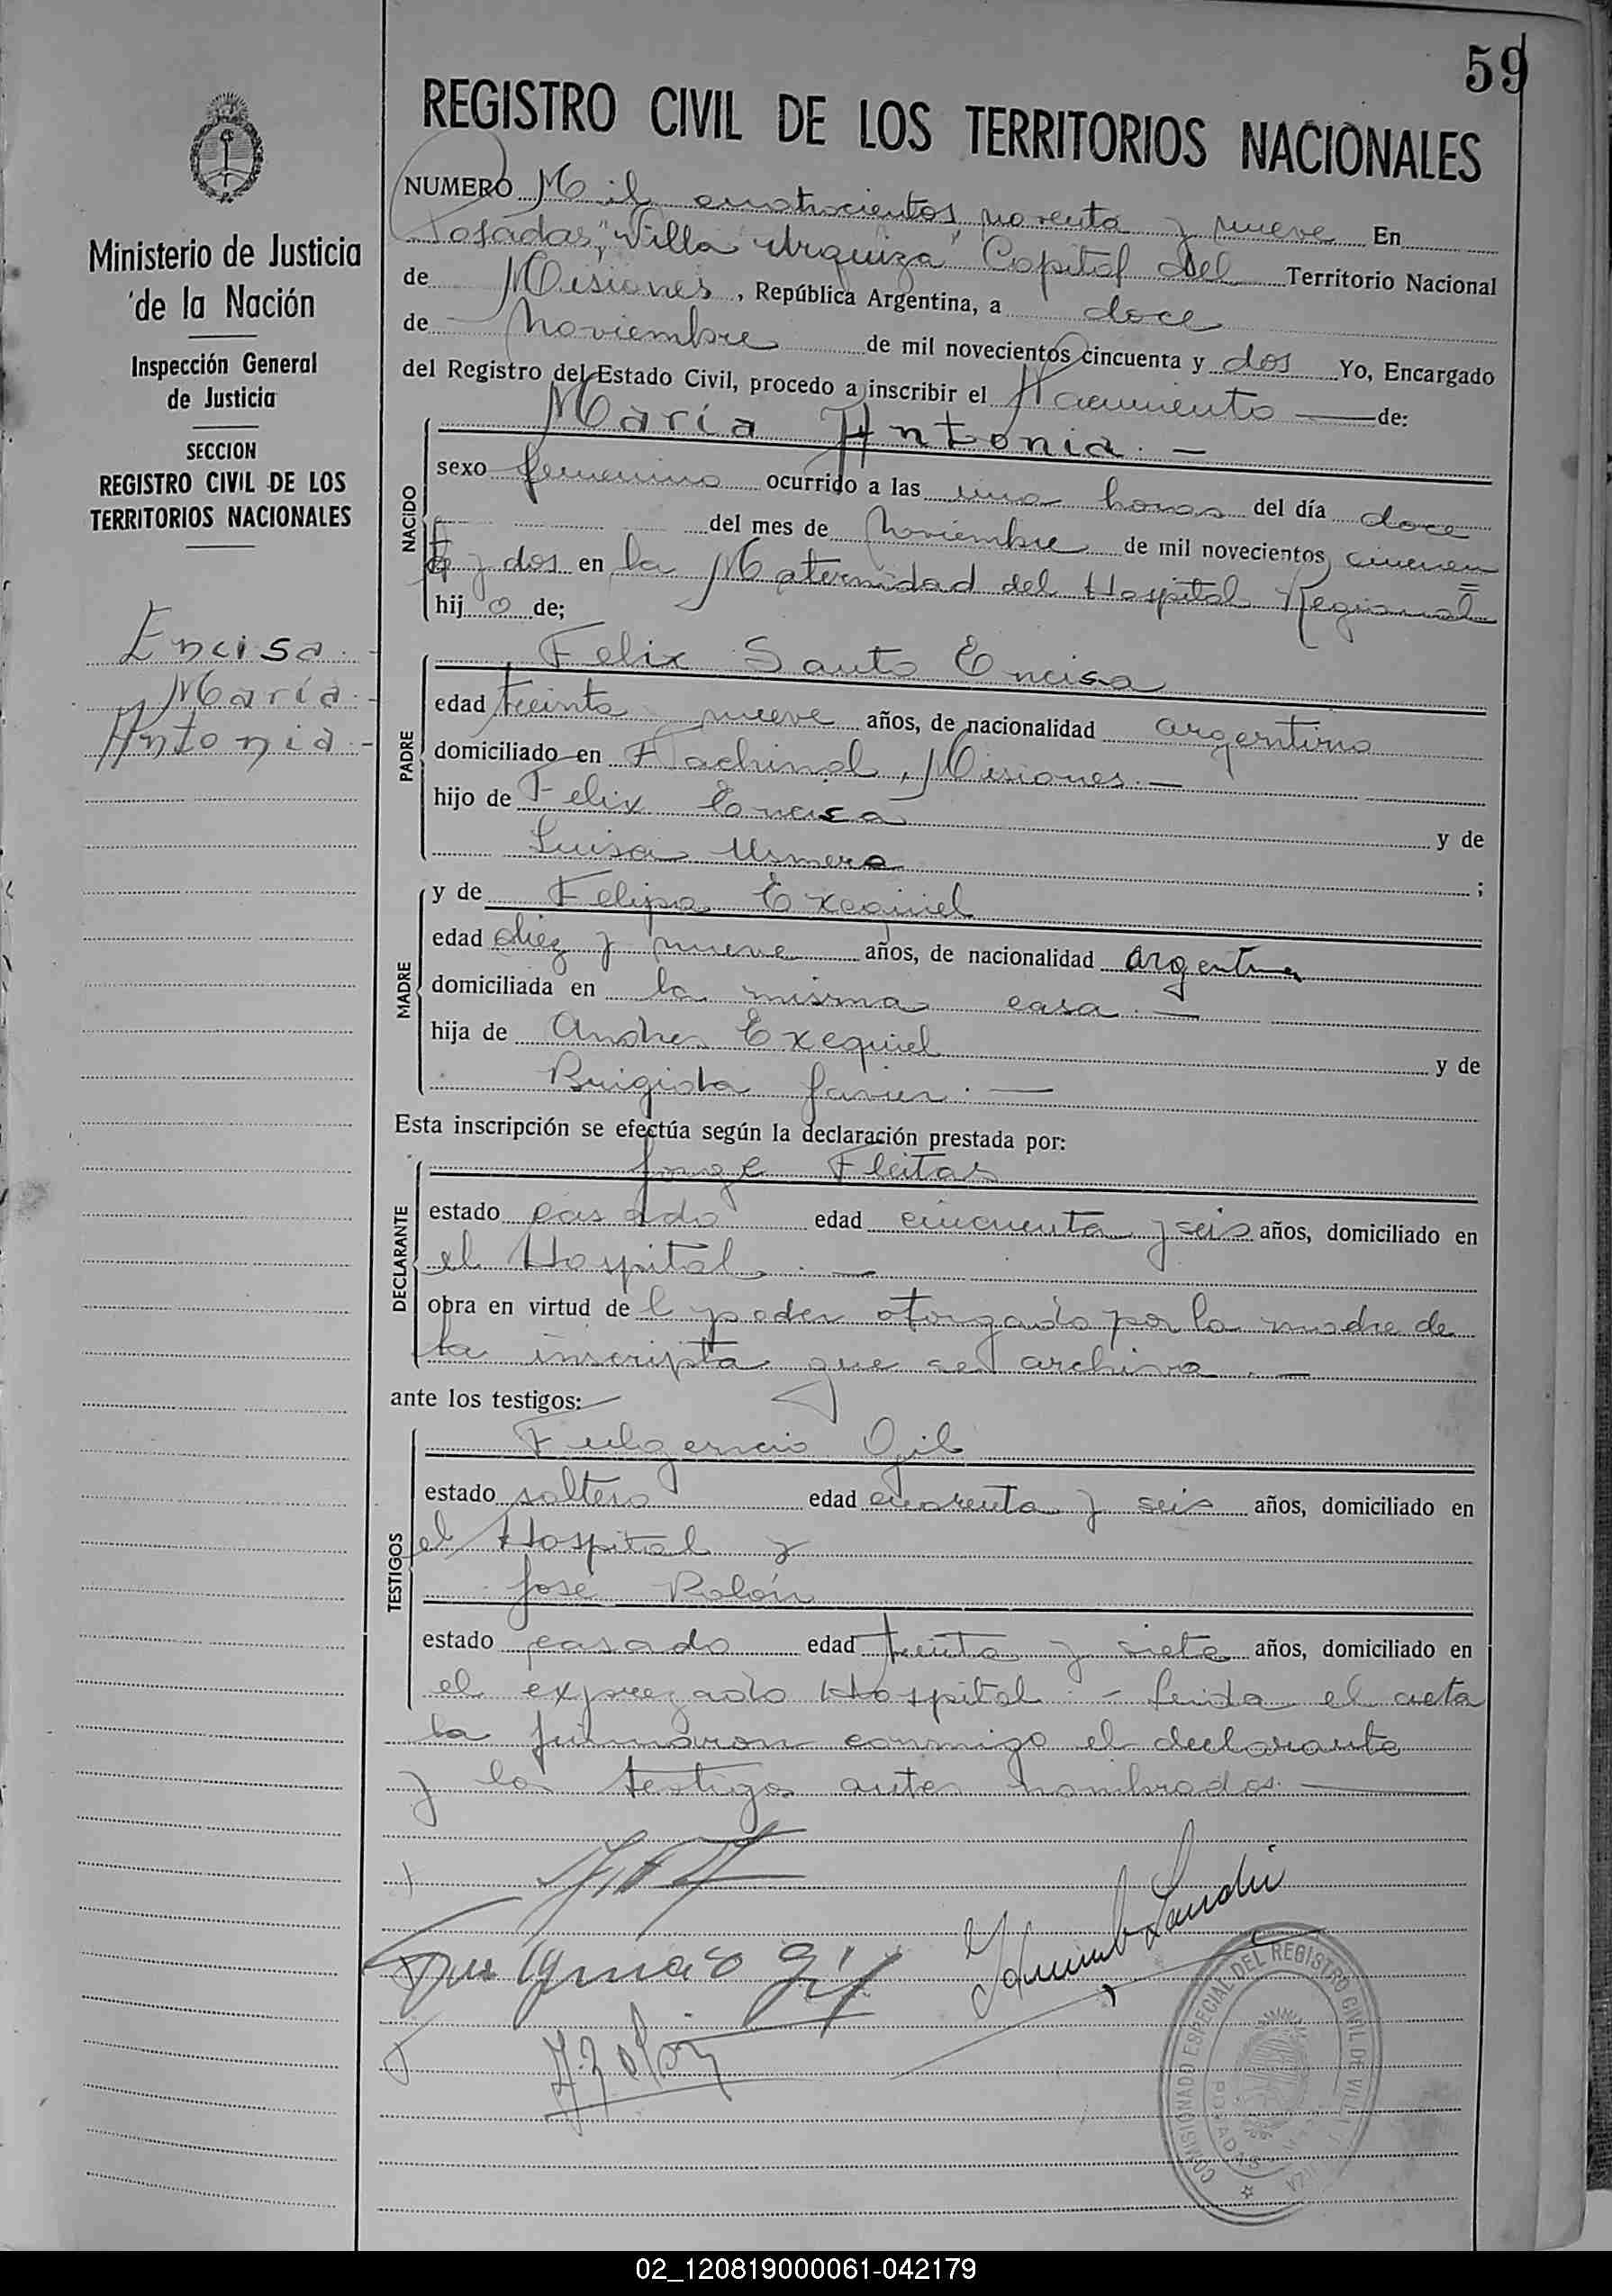 59
REGISTRO CIVIL DE LOS TERRITORIOS NACIONALES
Ministerio de Justicia
de la Nación
Inspección General
de Justicia
SECCION
REGISTRO CIVIL DE LOS
TERRITORIOS NACIONALES
Encisa.-
María.-
Antonia.-
NUMERO Mil cuatrocientos noventa y nueve En
Posadas, "Villa Urquiza" Capital del Territorio Nacional
de Misiones, República Argentina, a doce
de noviembre de mil novecientos cincuenta y dos Yo, Encargado
del Registro del Estado Civil, procedo a inscribir el Nacimiento de:
NACIDO
María Antonia.-
sexo femenino ocurrido a las una horas del día doce
del mes de Noviembre de mil novecientos cincuen=
ta y dos en la Maternidad del Hospital Regional
hij a de;
PADRE
Felix Santo Encisa
edad treinta nueve años, de nacionalidad argentino
domiciliado en Fachinal, Misiones.-
hijo de Felix Encisa y de
Luisa ;
MADRE
y de Felipa Exequiel
edad diez y nueve años, de nacionalidad argentina
domiciliada en la misma casa.-
hija de Andres Exequiel y de
Brigida Javier.-
Esta inscripción se efectúa según la declaración prestada por:
DECLARANTE
Jorge Fleitas
estado casado edad cincuenta y seis años, domiciliado en
el Hospital.-
obra en virtud de l poder otorgado por la madre de
la inscripta que se archiva.-
ante los testigos:
TESTIGOS
Fulgencio Gil
estado soltero edad cuarenta y seis años, domiciliado en
el Hospital y
José Rolón
estado casado edad treinta y siete años, domiciliado en
el expresado Hospital.- Leida el acta
la firmaron conmigo el declarante
y los testigos antes nombrados.
COMISIONADO ESPECIAL DEL REGISTRO CIVIL DE VILLA
POSADAS
02_120819000061-042179